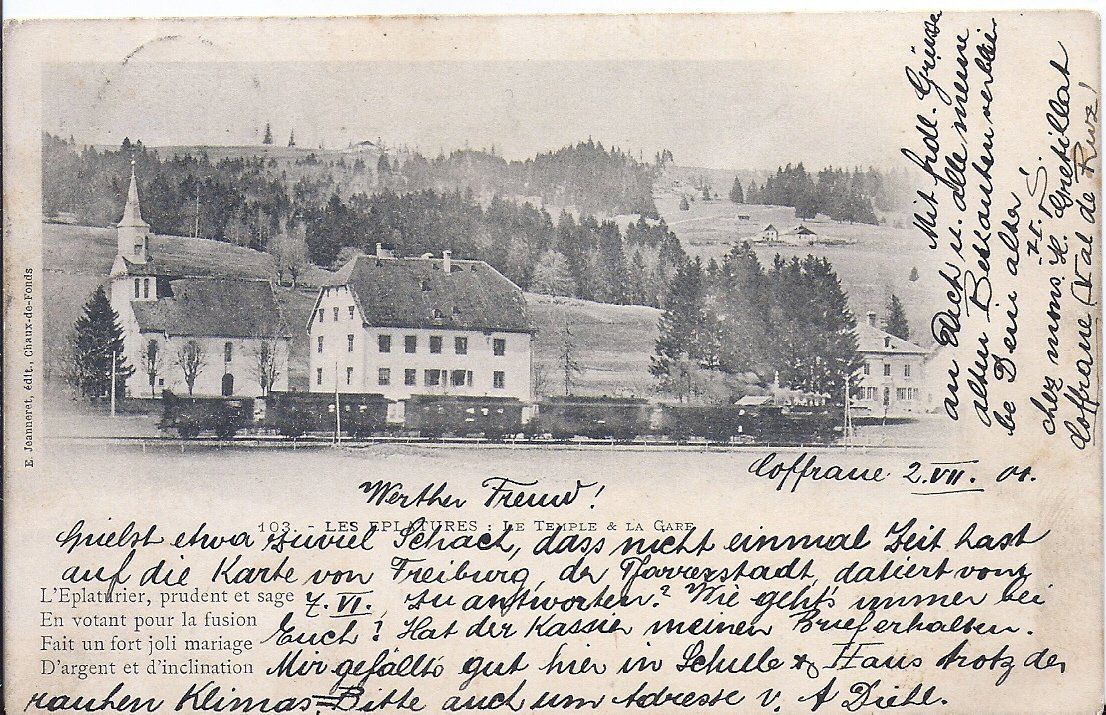 Coffrane 2.VII. 01.
Werther Freund!
103. - LES EPLATURES : LE TEMPLE & LA GARE
Spielst etwa zuviel Schach, dass nicht einmal Zeit hast
auf die Karte von Freiburg, der Pfarrerstadt, datiert vom
7. VI., zu antworten? Wie geht's immer bei
Euch? Hat der Kassier meinen Brief erhalten.
Mir gefällt's gut hier in Schule & Haus trotz der
rauhen Klimas. Bitte auch um Adresse v. A Diehl.
L'Eplaturier, prudent et sage
En votant pour la fusion
Fait un fort joli mariage
D'argent et d'inclination
Mit frdl. Grüsse
an Dich u. alle meine
alten Bekannten verblei
be Dein alter
H. S.
chez mons. H. Gretillat
Coffrane (Val de Ruz!
E. Jeanneret, édit., Chaux-de-Fonds